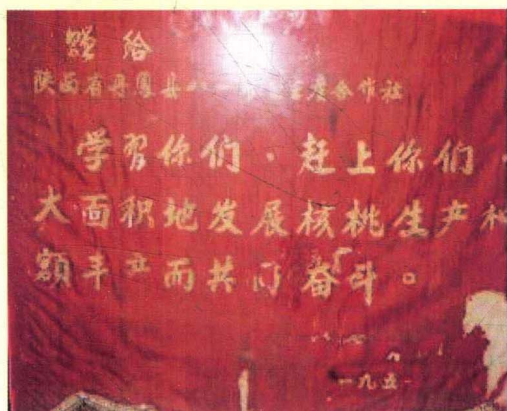 赠给
陕西省丹凤县 生产合作社
学习你们，赶上你们，
大面积地发展核桃生产和
额丰产而共同奋斗。
一九五